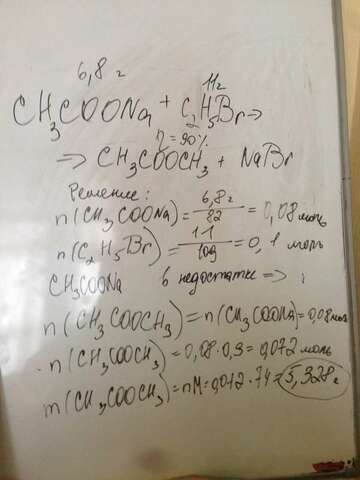 6,8 г
11г
CH₃COONa + C₂H₅Br →
η = 90%
⇒ CH₃COOCH₃ + NaBr
Решение:
n(CH₃COONa) = 6,8г / 82 = 0,08 моль
n(C₂H₅Br) = 11 / 109 = 0,1 моль
CH₃COONa в недостатке ⇒
n(CH₃COOCH₃) = n(CH₃COONa) = 0,08 моль
n(CH₃COOCH₃) = 0,08·0,9 = 0,072 моль
m(CH₃COOCH₃) = nM = 0,072·74 = 5,328г